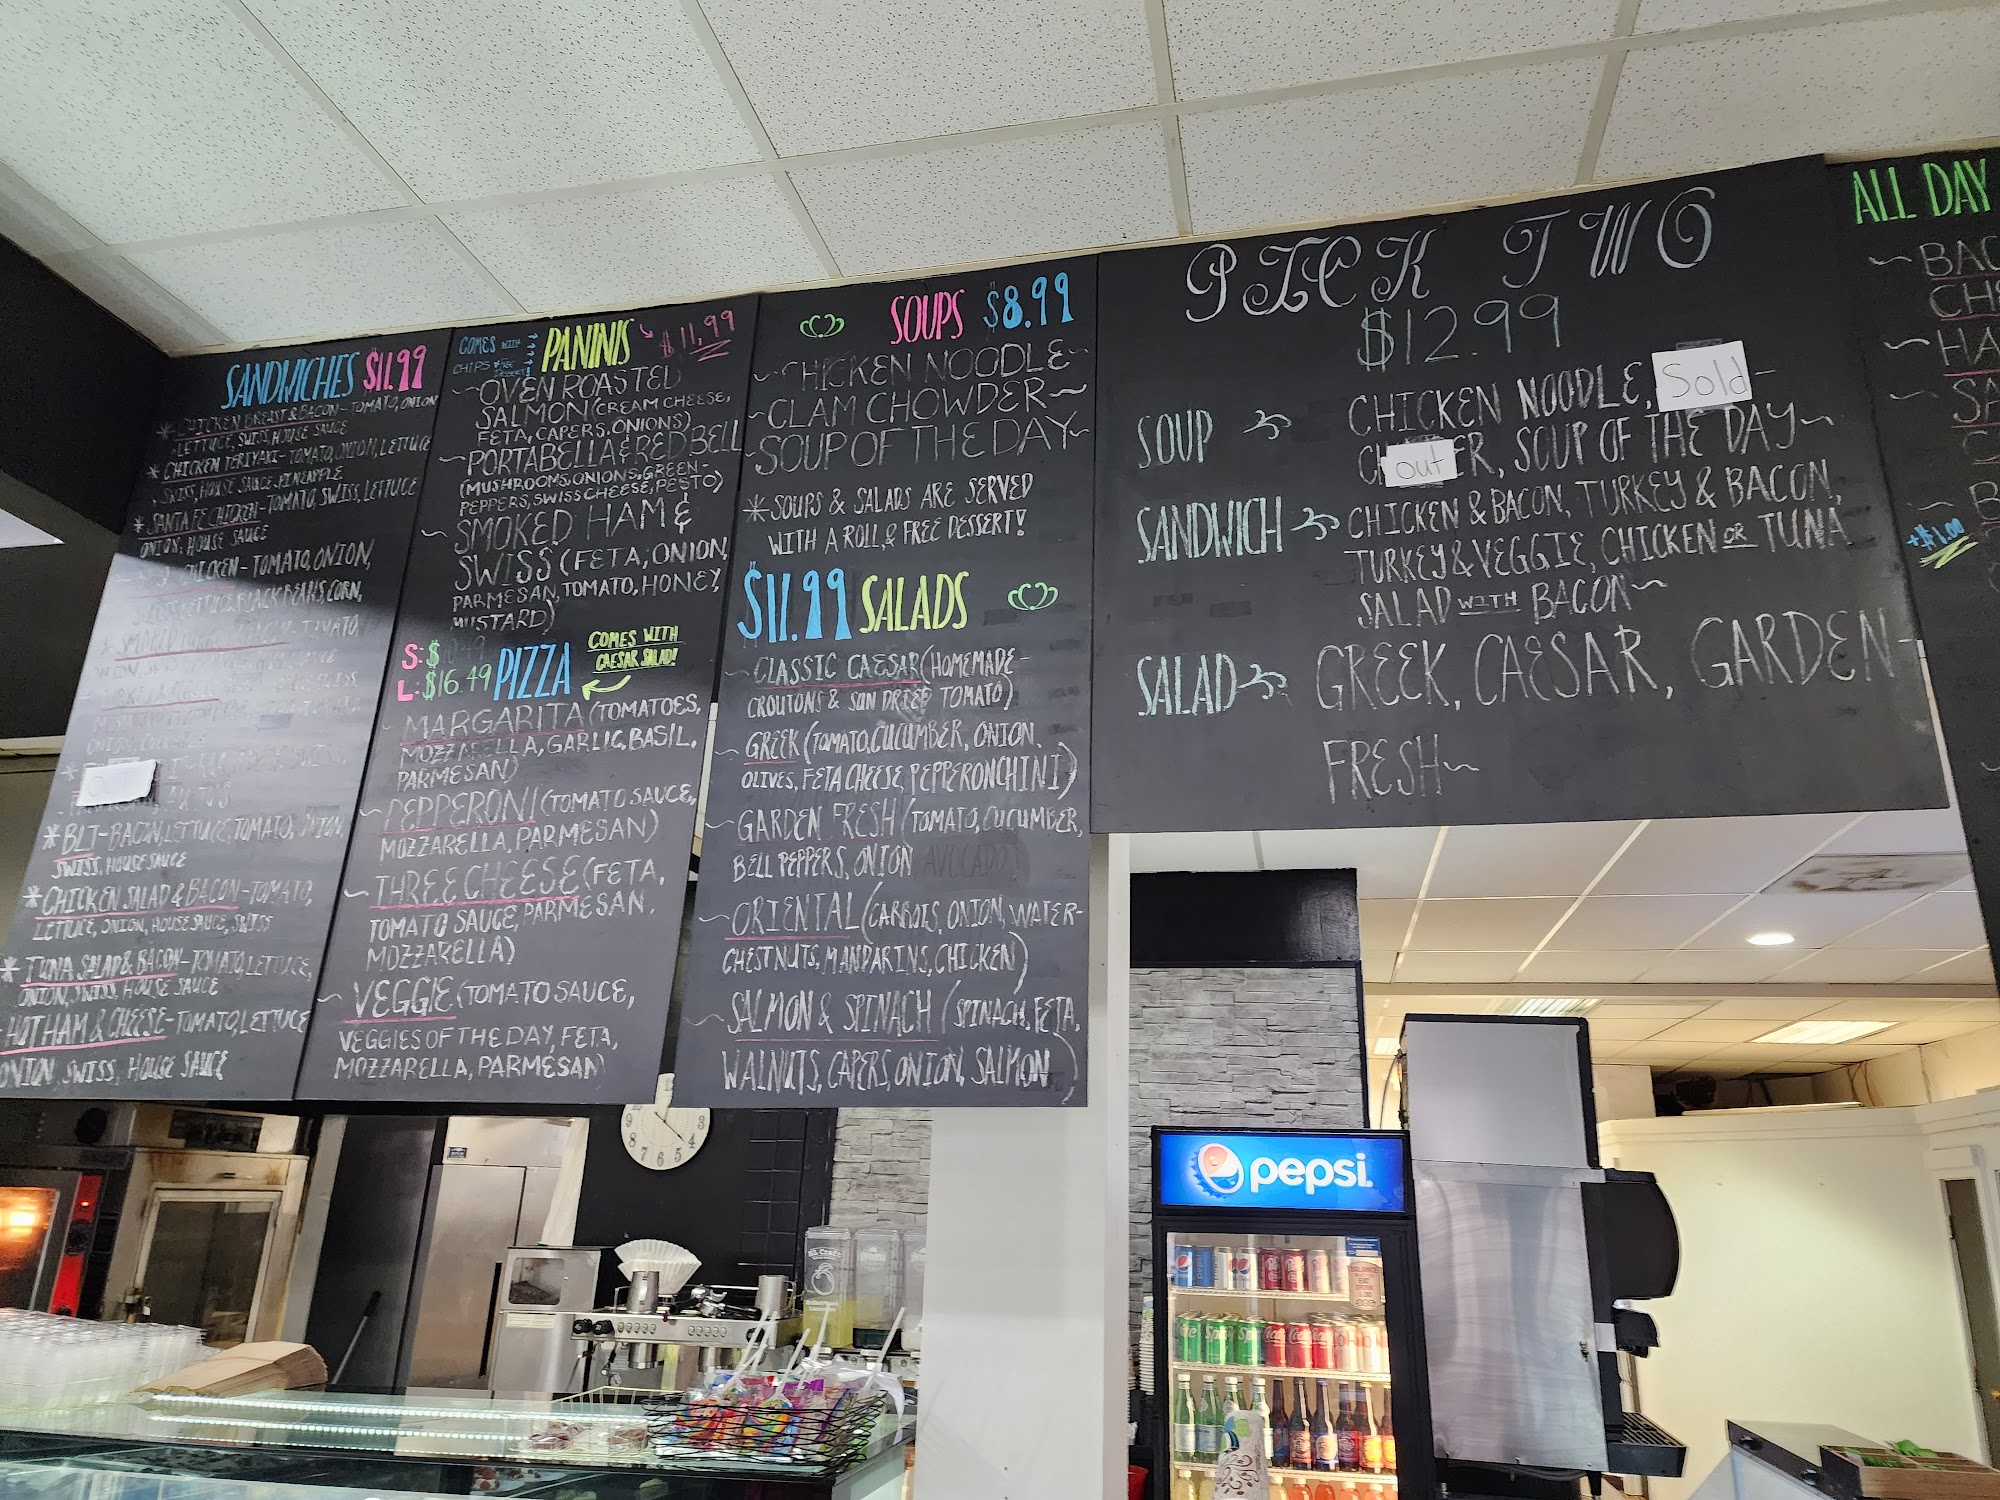 SANDWICHES $11.99
* CHICKEN BREAST & BACON - TOMATO, ONION
LETTUCE, SWISS, HOUSE SAUCE
* CHICKEN TERIYAKI - TOMATO, ONION, LETTUCE
SWISS, HOUSE SAUCE, PINEAPPLE
* SANTA FE CHICKEN - TOMATO, SWISS, LETTUCE
ONION, HOUSE SAUCE
CHICKEN - TOMATO, ONION,
LETTUCE, BLACK BEANS, CORN,
* BLT - BACON, LETTUCE, TOMATO, ONION,
SWISS, HOUSE SAUCE
* CHICKEN SALAD & BACON - TOMATO,
LETTUCE, ONION, HOUSE SAUCE, SWISS
* TUNA SALAD & BACON - TOMATO, LETTUCE,
ONION, SWISS, HOUSE SAUCE
HOT HAM & CHEESE - TOMATO, LETTUCE
ONION, SWISS, HOUSE SAUCE
COMES WITH
CHIPS & FREE
DESSERT!
PANINIS $11.99
~ OVEN ROASTED
SALMON (CREAM CHEESE,
FETA, CAPERS, ONIONS)
~ PORTABELLA & RED BELL
(MUSHROOMS, ONIONS, GREEN-
PEPPERS, SWISS CHEESE, PESTO)
~ SMOKED HAM &
SWISS (FETA, ONION,
PARMESAN, TOMATO, HONEY,
MUSTARD)
S: $
L: $16.49 PIZZA
COMES WITH
CAESAR SALAD!
~ MARGARITA (TOMATOES,
MOZZARELLA, GARLIC, BASIL,
PARMESAN)
~ PEPPERONI (TOMATO SAUCE,
MOZZARELLA, PARMESAN)
~ THREE CHEESE (FETA,
TOMATO SAUCE, PARMESAN,
MOZZARELLA)
~ VEGGIE (TOMATO SAUCE,
VEGGIES OF THE DAY, FETA,
MOZZARELLA, PARMESAN)
SOUPS $8.99
~ CHICKEN NOODLE ~
~ CLAM CHOWDER ~
~ SOUP OF THE DAY ~
* SOUPS & SALADS ARE SERVED
WITH A ROLL & FREE DESSERT!
$11.99 SALADS
~ CLASSIC CAESAR (HOMEMADE -
CROUTONS & SUN DRIED TOMATO)
~ GREEK (TOMATO, CUCUMBER, ONION,
OLIVES, FETA CHEESE, PEPPERONCHINI)
~ GARDEN FRESH (TOMATO, CUCUMBER,
BELL PEPPERS, ONION AVOCADO)
~ ORIENTAL (CARROTS, ONION, WATER-
CHESTNUTS, MANDARINS, CHICKEN)
~ SALMON & SPINACH (SPINACH, FETA,
WALNUTS, CAPERS, ONION, SALMON)
PICK TWO
$12.99
SOUP CHICKEN NOODLE, Sold -
out ER, SOUP OF THE DAY ~
SANDWICH CHICKEN & BACON, TURKEY & BACON,
TURKEY & VEGGIE, CHICKEN OR TUNA
SALAD WITH BACON ~
SALAD GREEK, CAESAR, GARDEN -
FRESH ~
ALL DAY
~ BAC
CH
~ HA
~ SA
+ $1.00
pepsi.